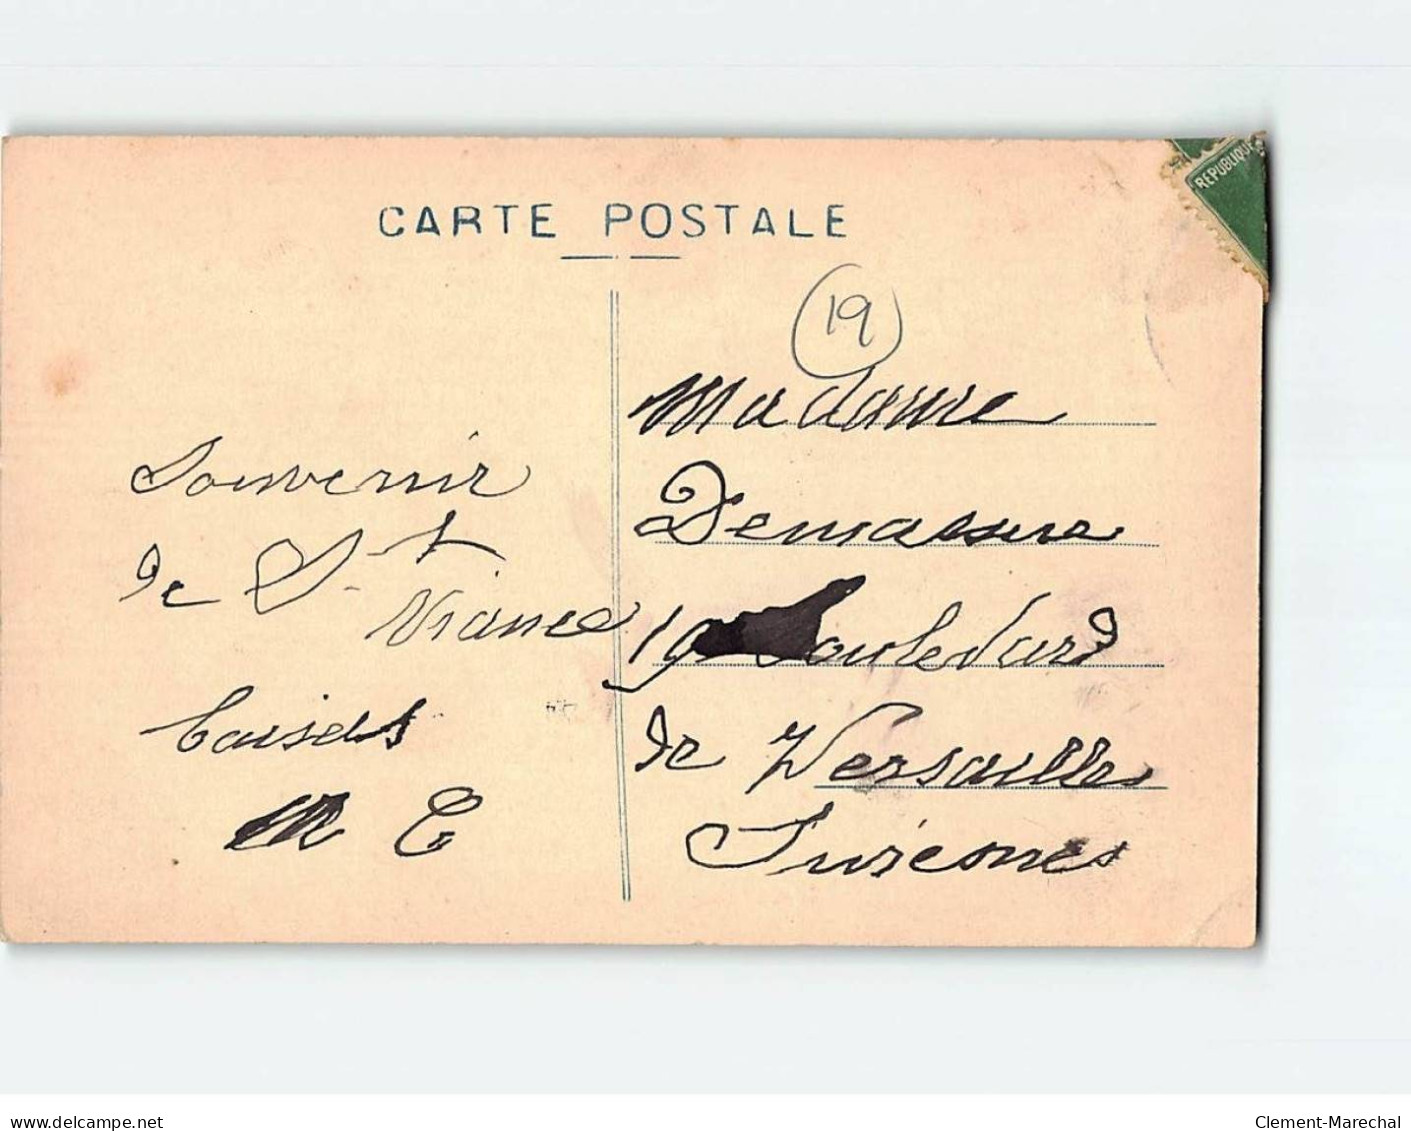 CARTE POSTALE
REPUBLIQUE
19
Souvenir
de St
Viance
baisers
M C
Madame
Demassure
19 Boulevard
de Versailles
Suresnes
delcampe.net
Clement-Marechal